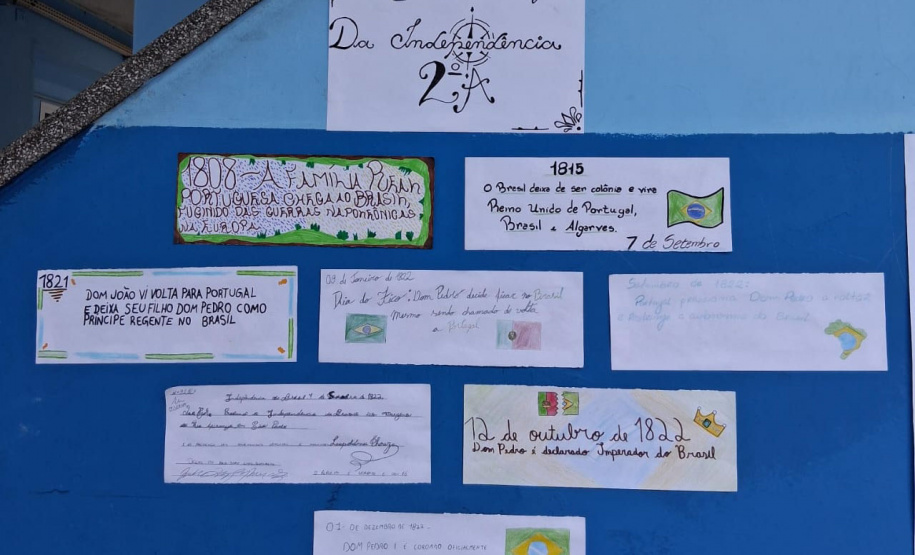 Da Independência
2º A
1808 - A Família Real
PORTUGUESA CHEGA AO BRASIL,
FUGINDO DAS GUERRAS NAPOLEÔNICAS
NA EUROPA
1815
O Brasil deixa de ser colônia e vira
Reino Unido de Portugal,
Brasil e Algarves.
7 de Setembro
1821
DOM JOÃO VI VOLTA PARA PORTUGAL
E DEIXA SEU FILHO DOM PEDRO COMO
PRÍNCIPE REGENTE NO BRASIL
09 de Janeiro de 1822
Dia do Fico: Dom Pedro decide ficar no Brasil
mesmo sendo chamado de volta
a Portugal
de 1822:
Portugal Dom Pedro a voltar
e a autonomia do Brasil
Independência do Brasil 7 de de 1822
a Independência do Brasil às margens
do Rio Ipiranga em São Paulo
12 de outubro de 1822
Dom Pedro é declarado Imperador do Brasil
01 DE DEZEMBRO DE 1822.
DOM PEDRO I É COROADO OFICIALMENTE